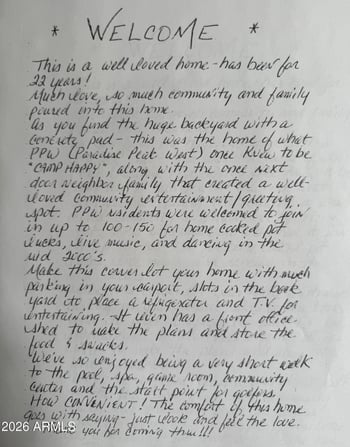 * WELCOME *
This is a well loved home - has been for
22 years!
Much love, so much community and family
poured into this home.
As you find the huge backyard with a
concrete pad - this was the home of what
PPW (Paradise Peak West) once knew to be
"CAMP HAPPY", along with the once next
door neighbor family that created a well-
loved community entertainment/greeting
spot. PPW residents were welcomed to join
in up to 100-150 for home cooked pot
lucks, live music, and dancing in the
mid 2000's.
Make this corner lot your home with much
parking in your carport, slots in the back
yard to, place a refrigerator and T.V. for
entertaining. It even has a front office
shed to make the plans and store the
food & snacks.
We've so enjoyed being a very short walk
to the pool, spa, game room, community
center and the start point for golfers.
HOW CONVENIENT! The comfort of this home
goes with saying - just look and feel the love.
you for coming thru!!!
2026 ARMLS